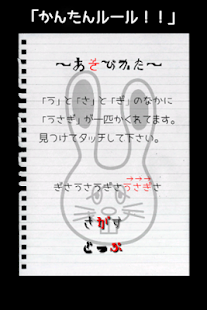 「かんたんルール！！」
〜あそびかた〜
「う」と「さ」と「ぎ」のなかに
「うさぎ」が一匹かくれてます。
見つけてタッチして下さい。
→→→
ぎさうさうさぎさうさぎさ
さがす
どっぷ